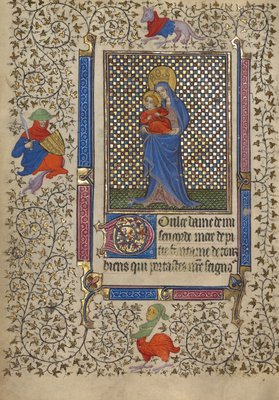 Doulce dame de mi
sericorde mere de pi
tie fontaine de tous
biens qui portastes nre seign